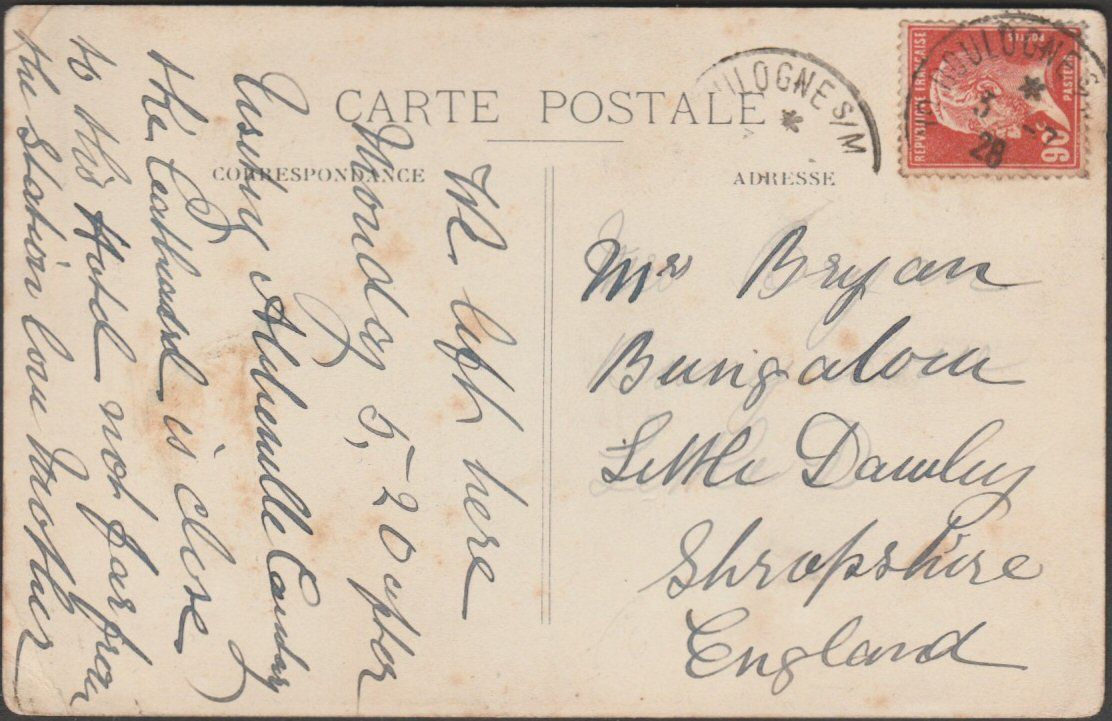 CARTE POSTALE
CORRESPONDANCE
ADRESSE
BOULOGNE S/M
OULOGNE S/M
3
28
REPVBLIQUE FRANÇAISE
POSTES
PASTEUR
90
We left here
Monday 5,20 after
Using Abbeville Country
the Cathedral is close
to this Hotel not far from
the Station love Mother
Mr Bryan
Bungalow
Little Dawley
Shropshire
England